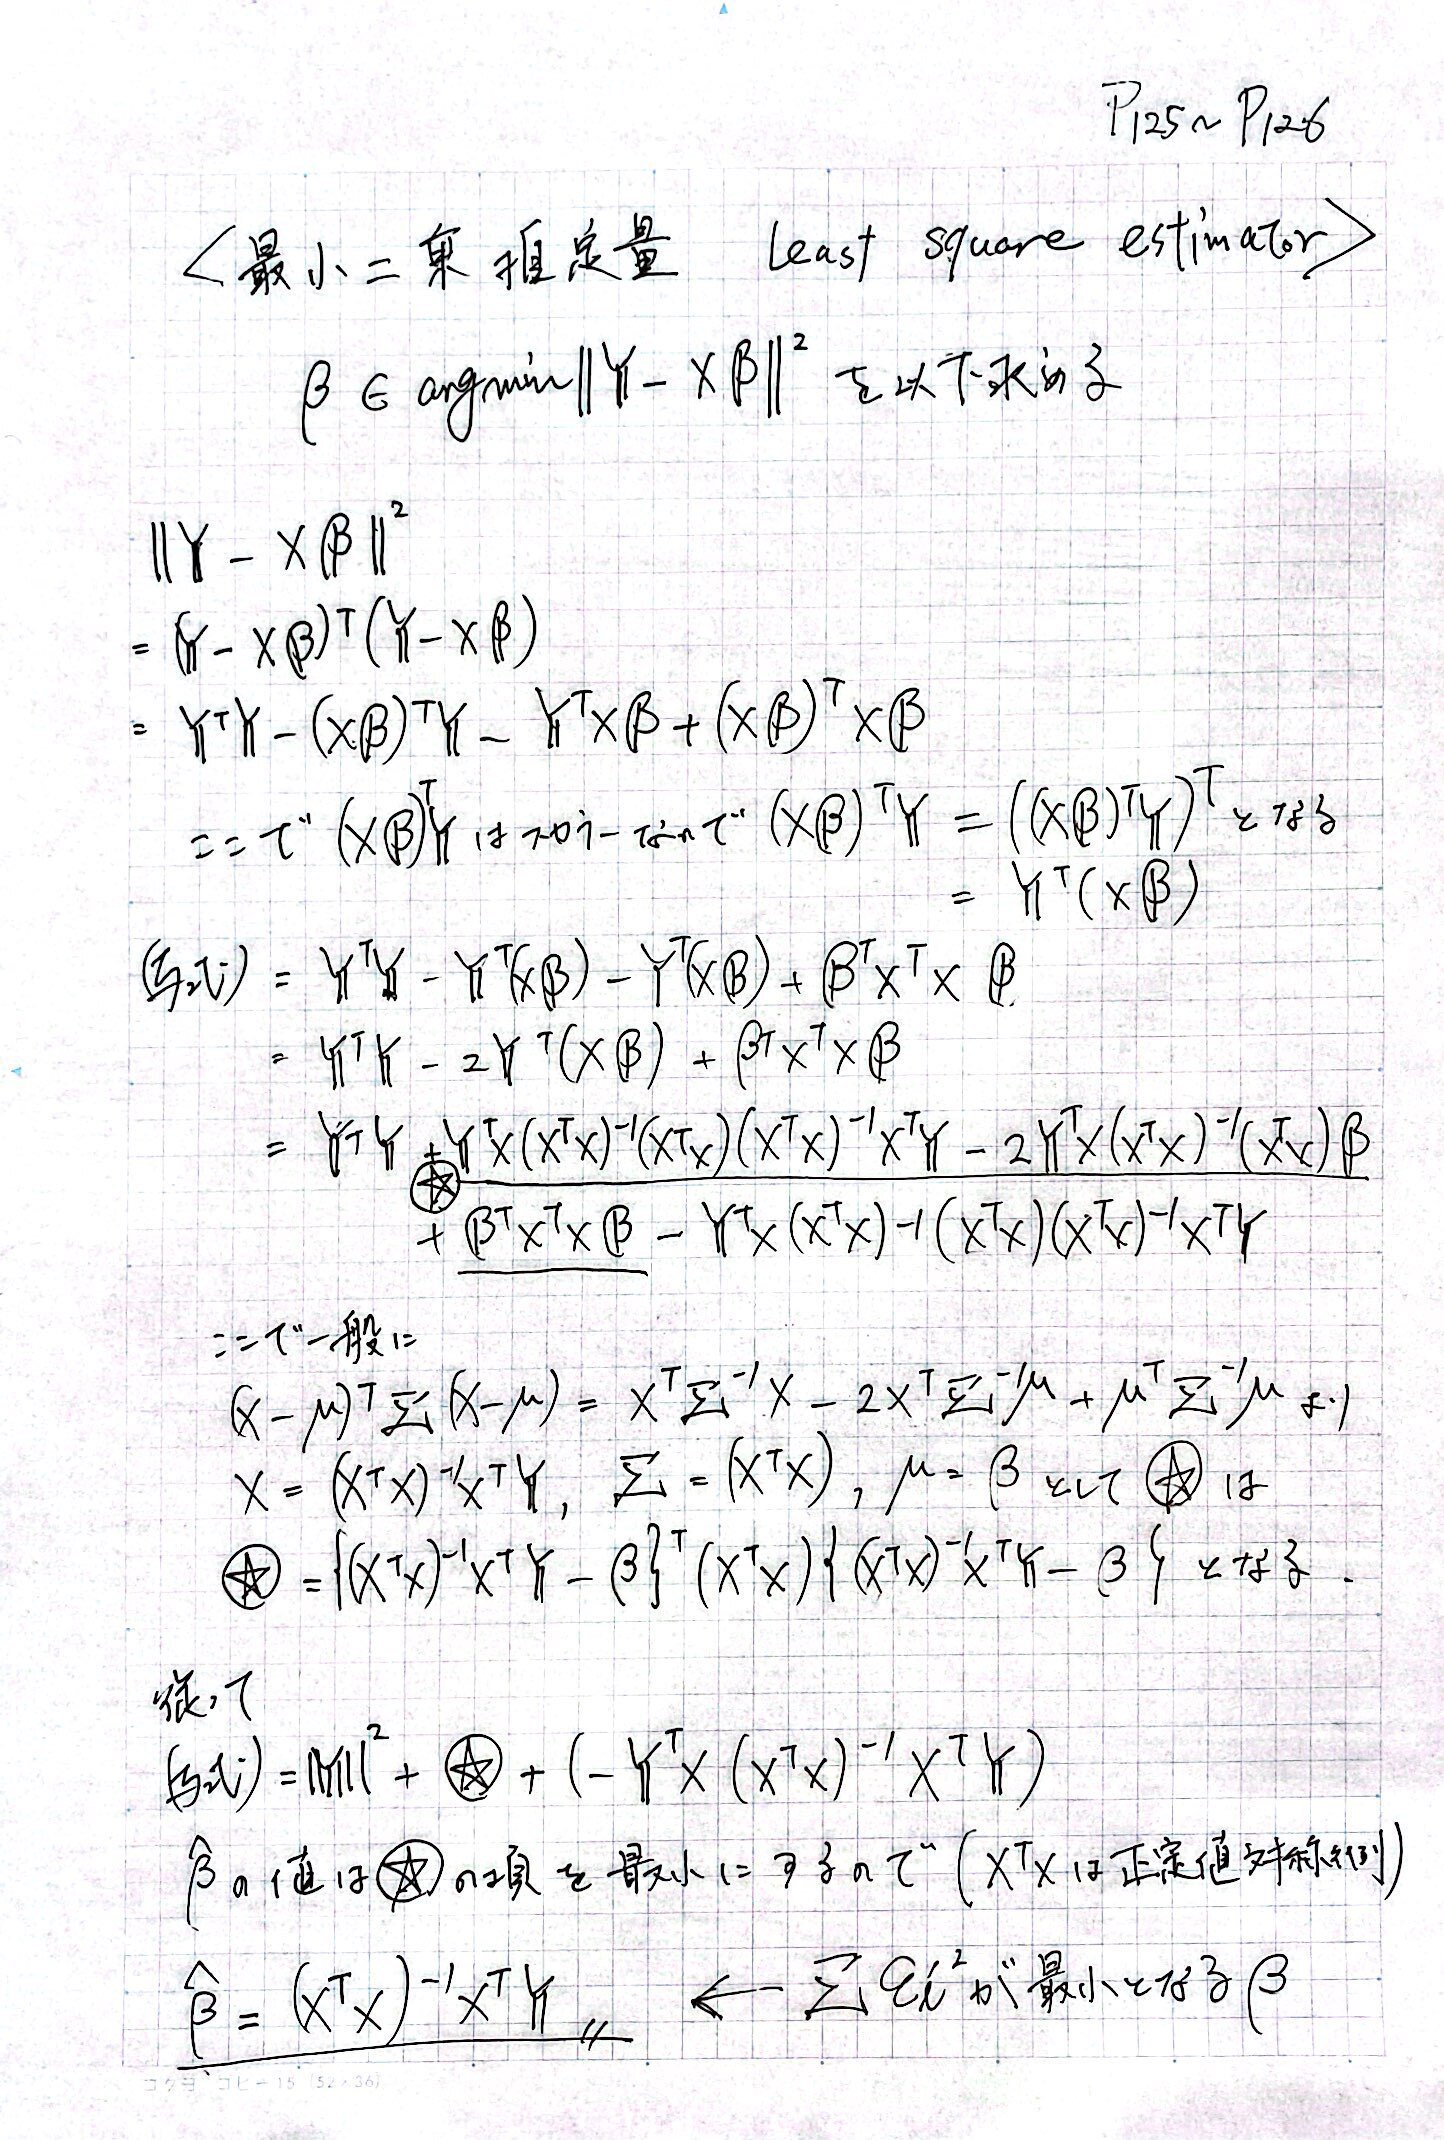 P125~P126
<最小二乗推定量 Least square estimator>
β ∈ argmin||Y - Xβ||² を以下求める
||Y - Xβ||²
= (Y - Xβ)ᵀ(Y - Xβ)
= YᵀY - (Xβ)ᵀY - YᵀXβ + (Xβ)ᵀXβ
ここで (Xβ)ᵀY はスカラーなので (Xβ)ᵀY = ((Xβ)ᵀY)ᵀ となる
= Yᵀ(Xβ)
(与式) = YᵀY - Yᵀ(Xβ) - Yᵀ(Xβ) + βᵀXᵀXβ
= YᵀY - 2Yᵀ(Xβ) + βᵀXᵀXβ
= YᵀY + YᵀX(XᵀX)⁻¹(XᵀX)(XᵀX)⁻¹XᵀY - 2YᵀX(XᵀX)⁻¹(XᵀX)β
☆
+ βᵀXᵀXβ - YᵀX(XᵀX)-1(XᵀX)(XᵀX)⁻¹XᵀY
ここで一般に
(x-μ)ᵀΣ(x-μ) = xᵀΣ⁻¹x - 2xᵀΣ⁻¹μ + μᵀΣ⁻¹μ より
x = (XᵀX)⁻¹XᵀY, Σ = (XᵀX), μ = β として ☆ は
☆ = {(XᵀX)⁻¹XᵀY - β}ᵀ(XᵀX){(XᵀX)⁻¹XᵀY - β} となる.
従って
(与式) = ||Y||² + ☆ + (-YᵀX(XᵀX)⁻¹XᵀY)
β̂の値は☆の項を最小にするので (XᵀXは正定値対称行列)
β̂ = (XᵀX)⁻¹XᵀY // ← Σεi²が最小となるβ
コクヨ コピー15 (52×36)